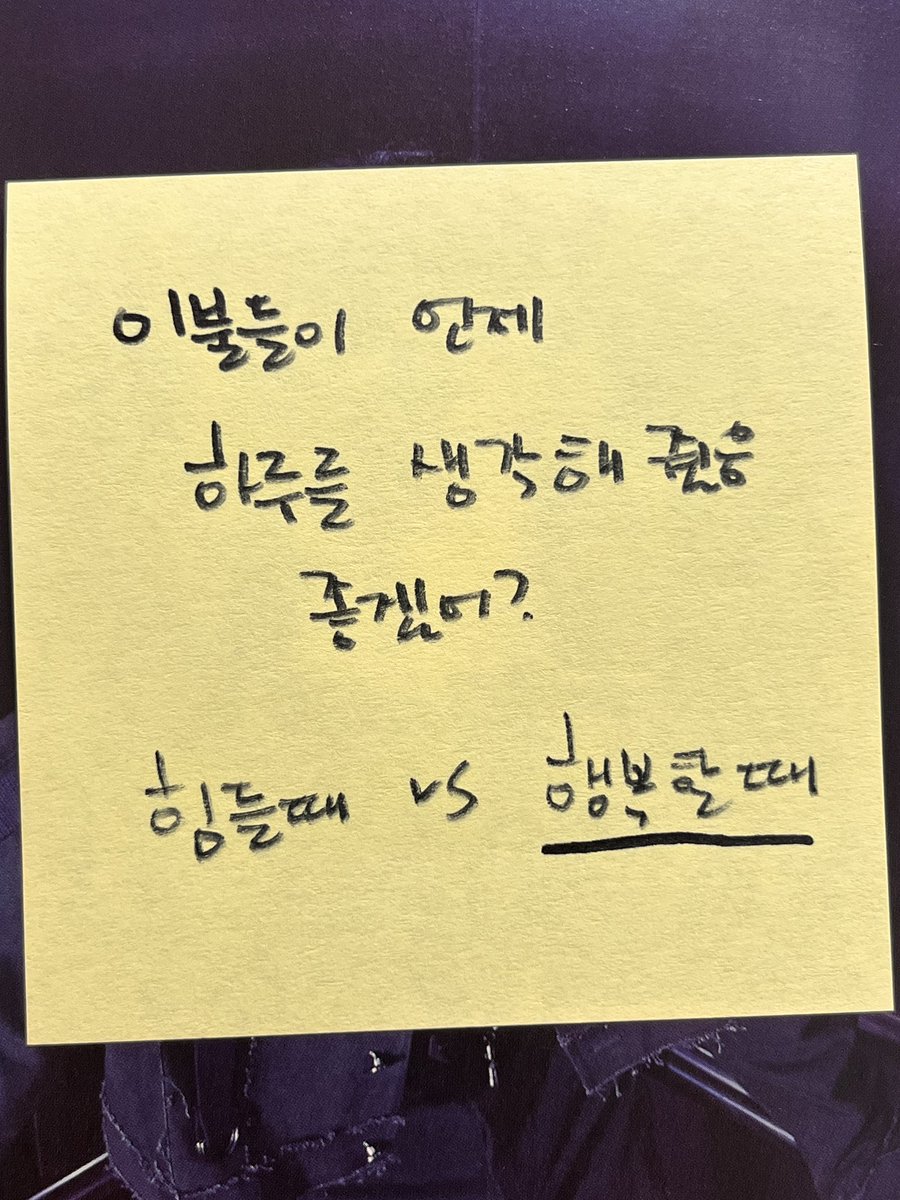 이불들이 언제
하루를 생각해 줬음
좋겠어?
힘들때 vs 행복할때